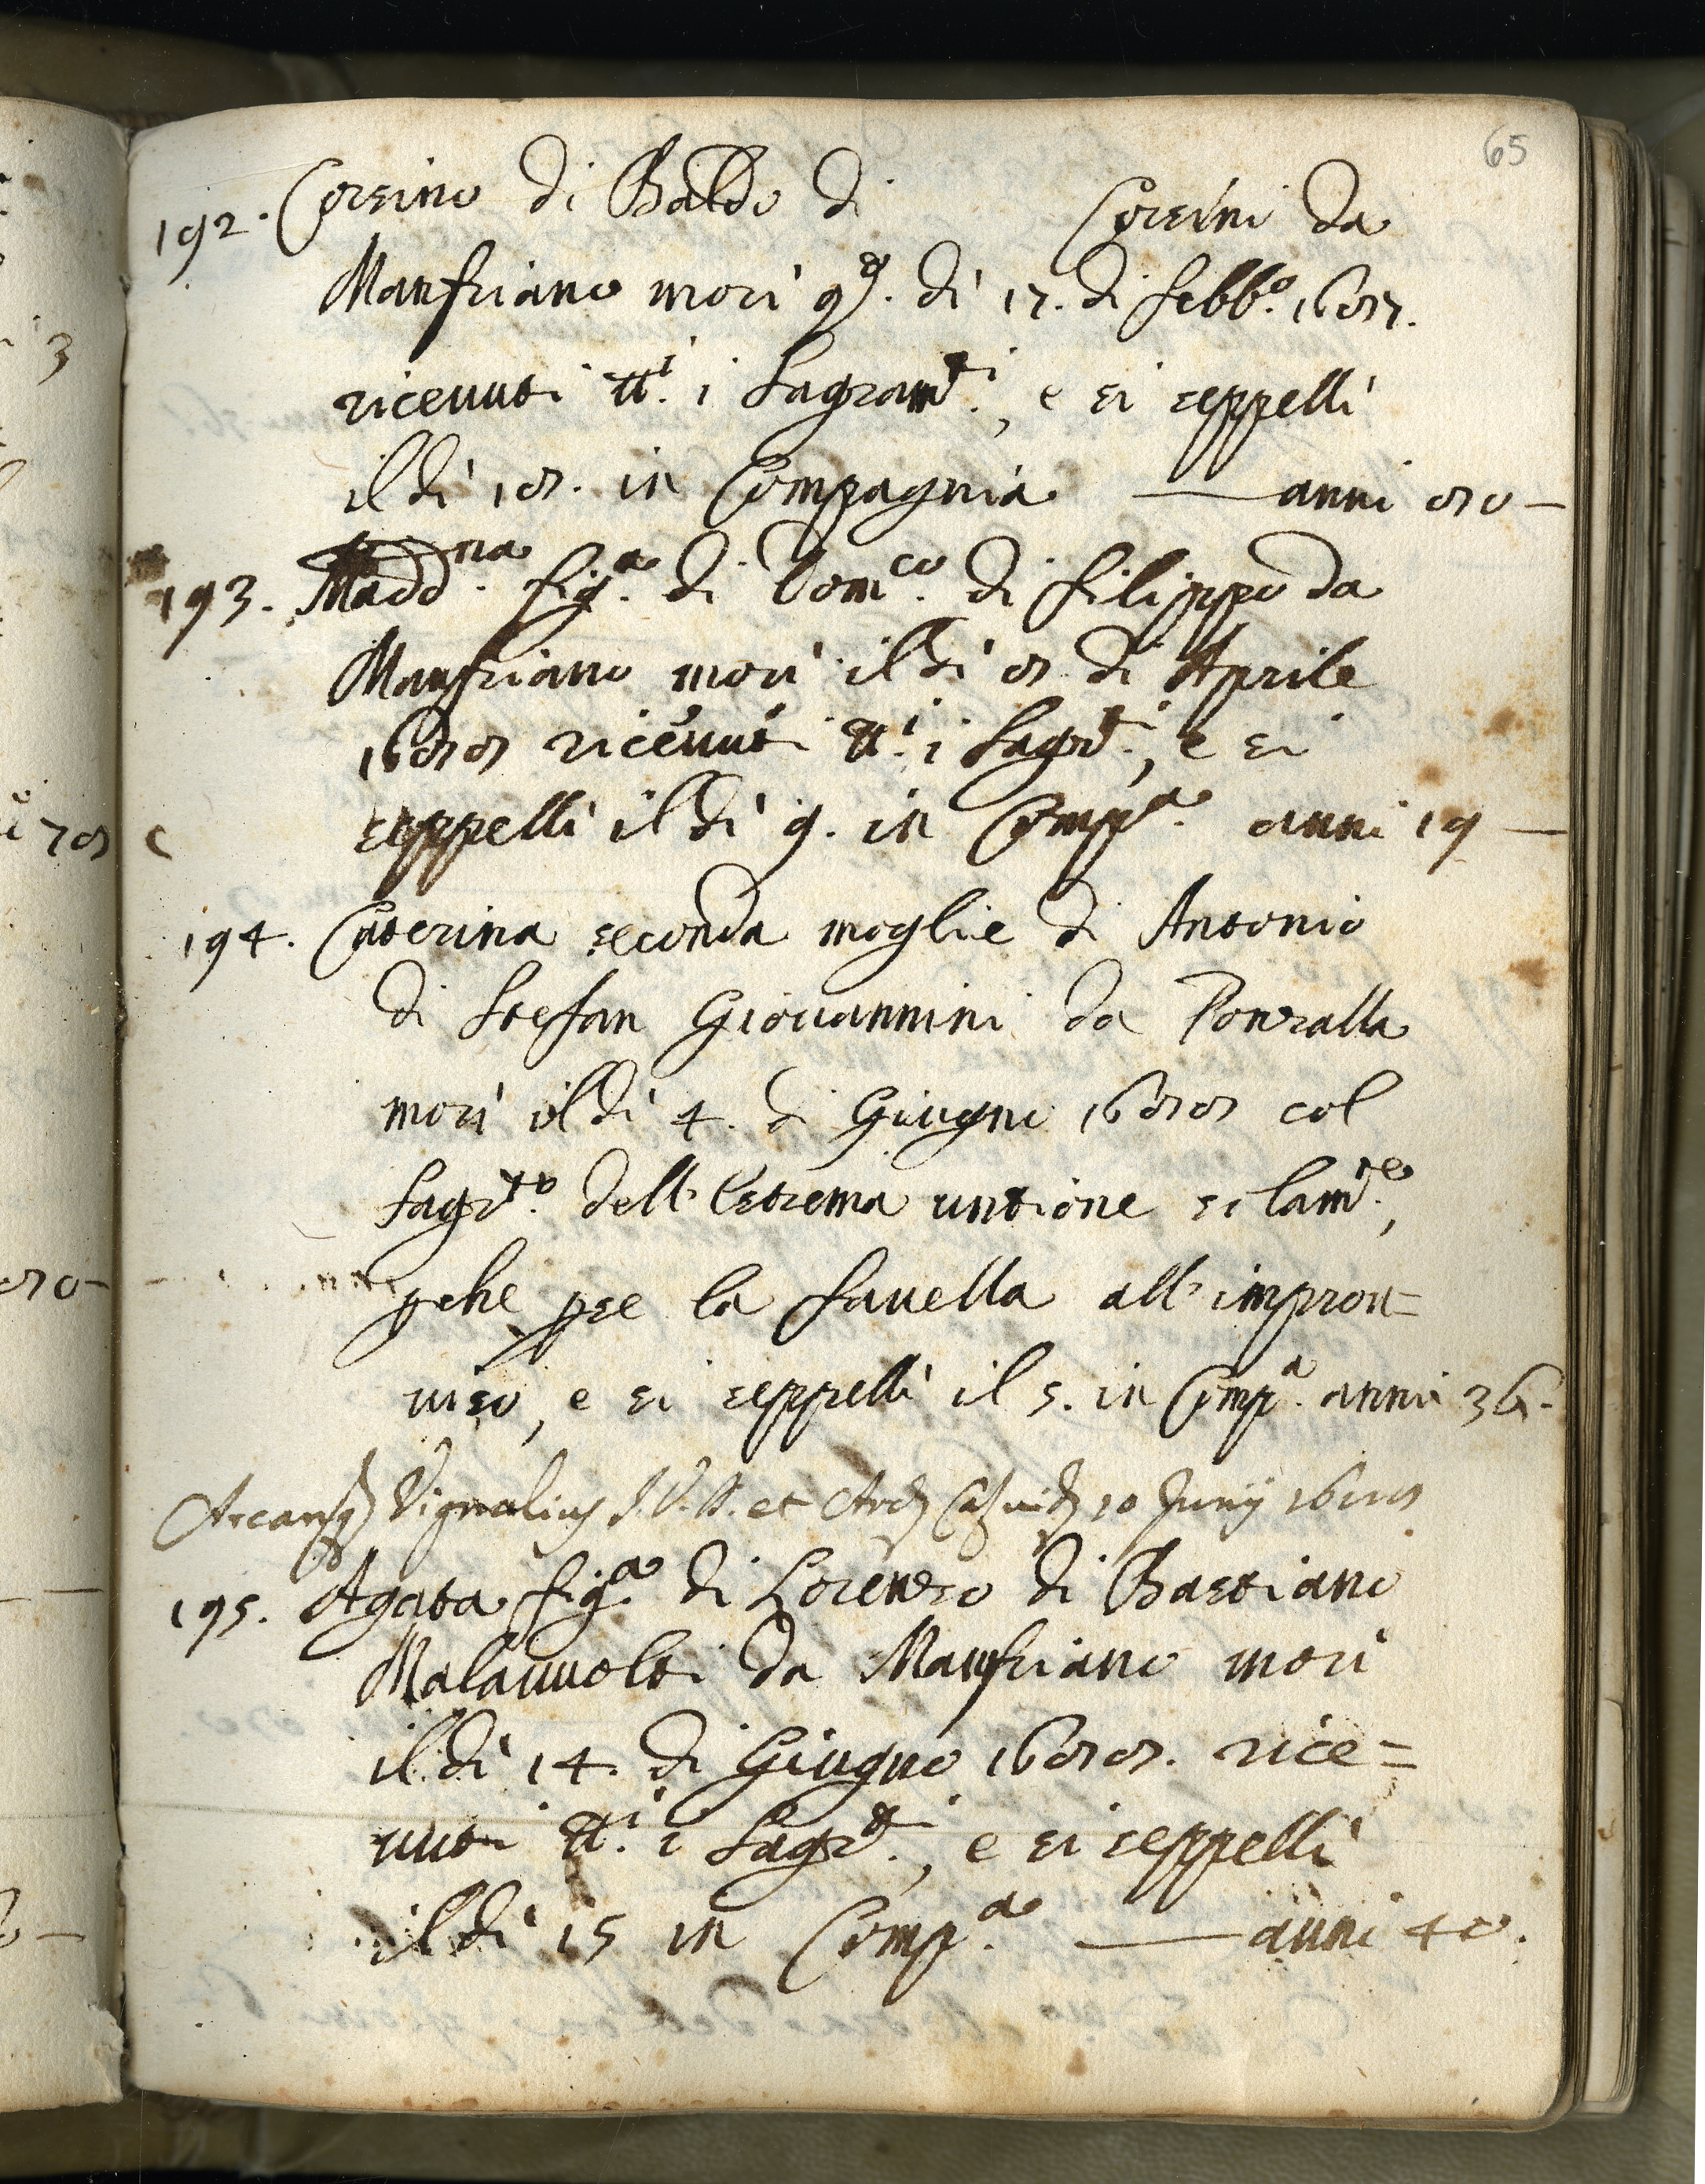 65
192. Corsino di Baldo di Corsini da
Manfriano morì q.to dì 17. di febb.o 1687.
ricevuti tt.i i Sagram.ti, e si seppellì
il dì 18. in Compagnia — anni 80 —
193. Madd.na fig.a di Dom.co di filippo da
Manfriano morì il dì 8 di Aprile
1688 ricevuti tt.i i Sagr.ti, e si
seppellì il dì 9. in Comp.a anni 19 —
194. Caterina seconda moglie di Antonio
di Stefan Giovannini da Ponzalla
morì il dì 4. di Giugno 1688 col
Sagr.to dell'Estrema untione solam.te,
pche pse la favella all'improu=
uiso, e si seppellì il 5. in Comp.a anni 36.
Vignalius et 10 Junij 1688
195. Agata fig.a di Lorenzo di Bastiano
Malauuolti da Manfriano morì
il dì 14. di Giugno 1688. rice=
uuti tt.i i Sagr.ti, e si seppellì
il dì 15 in Comp.a — anni 40.